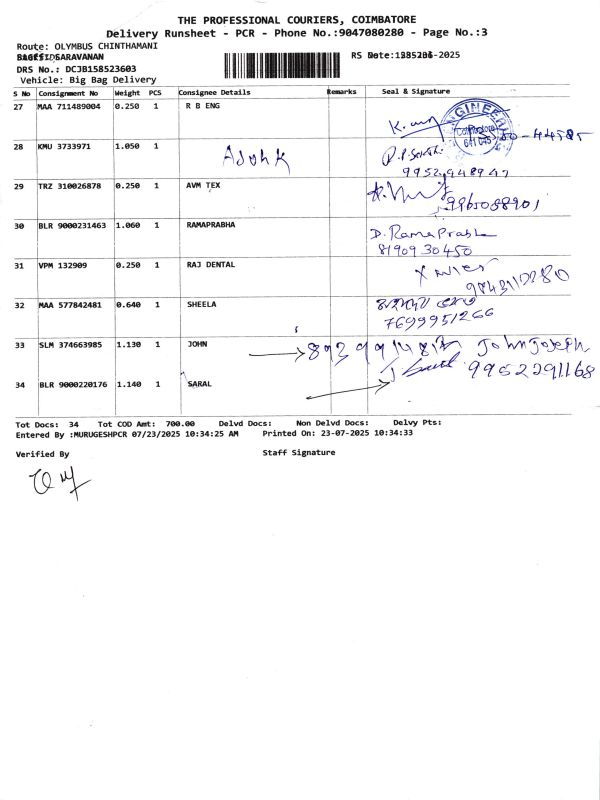 THE PROFESSIONAL COURIERS, COIMBATORE
Delivery Runsheet - PCR - Phone No.:9047080280 - Page No.:3
Route: OLYMBUS CHINTHAMANI
SARAVANAN RS
DRS No.: DCJB158523603
Vehicle: Big Bag Delivery
S No Consignment No Weight PCS Consignee Details Remarks Seal & Signature
27 MAA 711489004 0.250 1 R B ENG
28 KMU 3733971 1.050 1
9952948947
29 TRZ 310026878 0.250 1 AVM TEX
30 BLR 9000231463 1.060 1 RAMAPRABHA D. RamaPrabha
8190930450
31 VPM 132909 0.250 1 RAJ DENTAL
32 MAA 577842481 0.640 1 SHEELA
7699951266
33 SLM 374663985 1.130 1 JOHN John Joseph
34 BLR 9000220176 1.140 1 SARAL 9952291168
Tot Docs: 34 Tot COD Amt: 700.00 Delvd Docs: Non Delvd Docs: Delvy Pts:
Entered By :MURUGESHPCR 07/23/2025 10:34:25 AM Printed On: 23-07-2025 10:34:33
Verified By Staff Signature